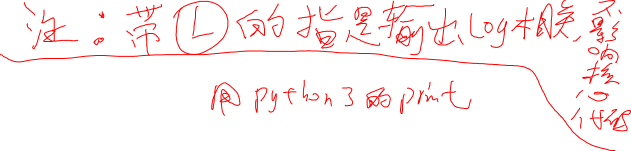 注：带Ⓛ的指是输出Log相关，不影响核心代码
用python3的print